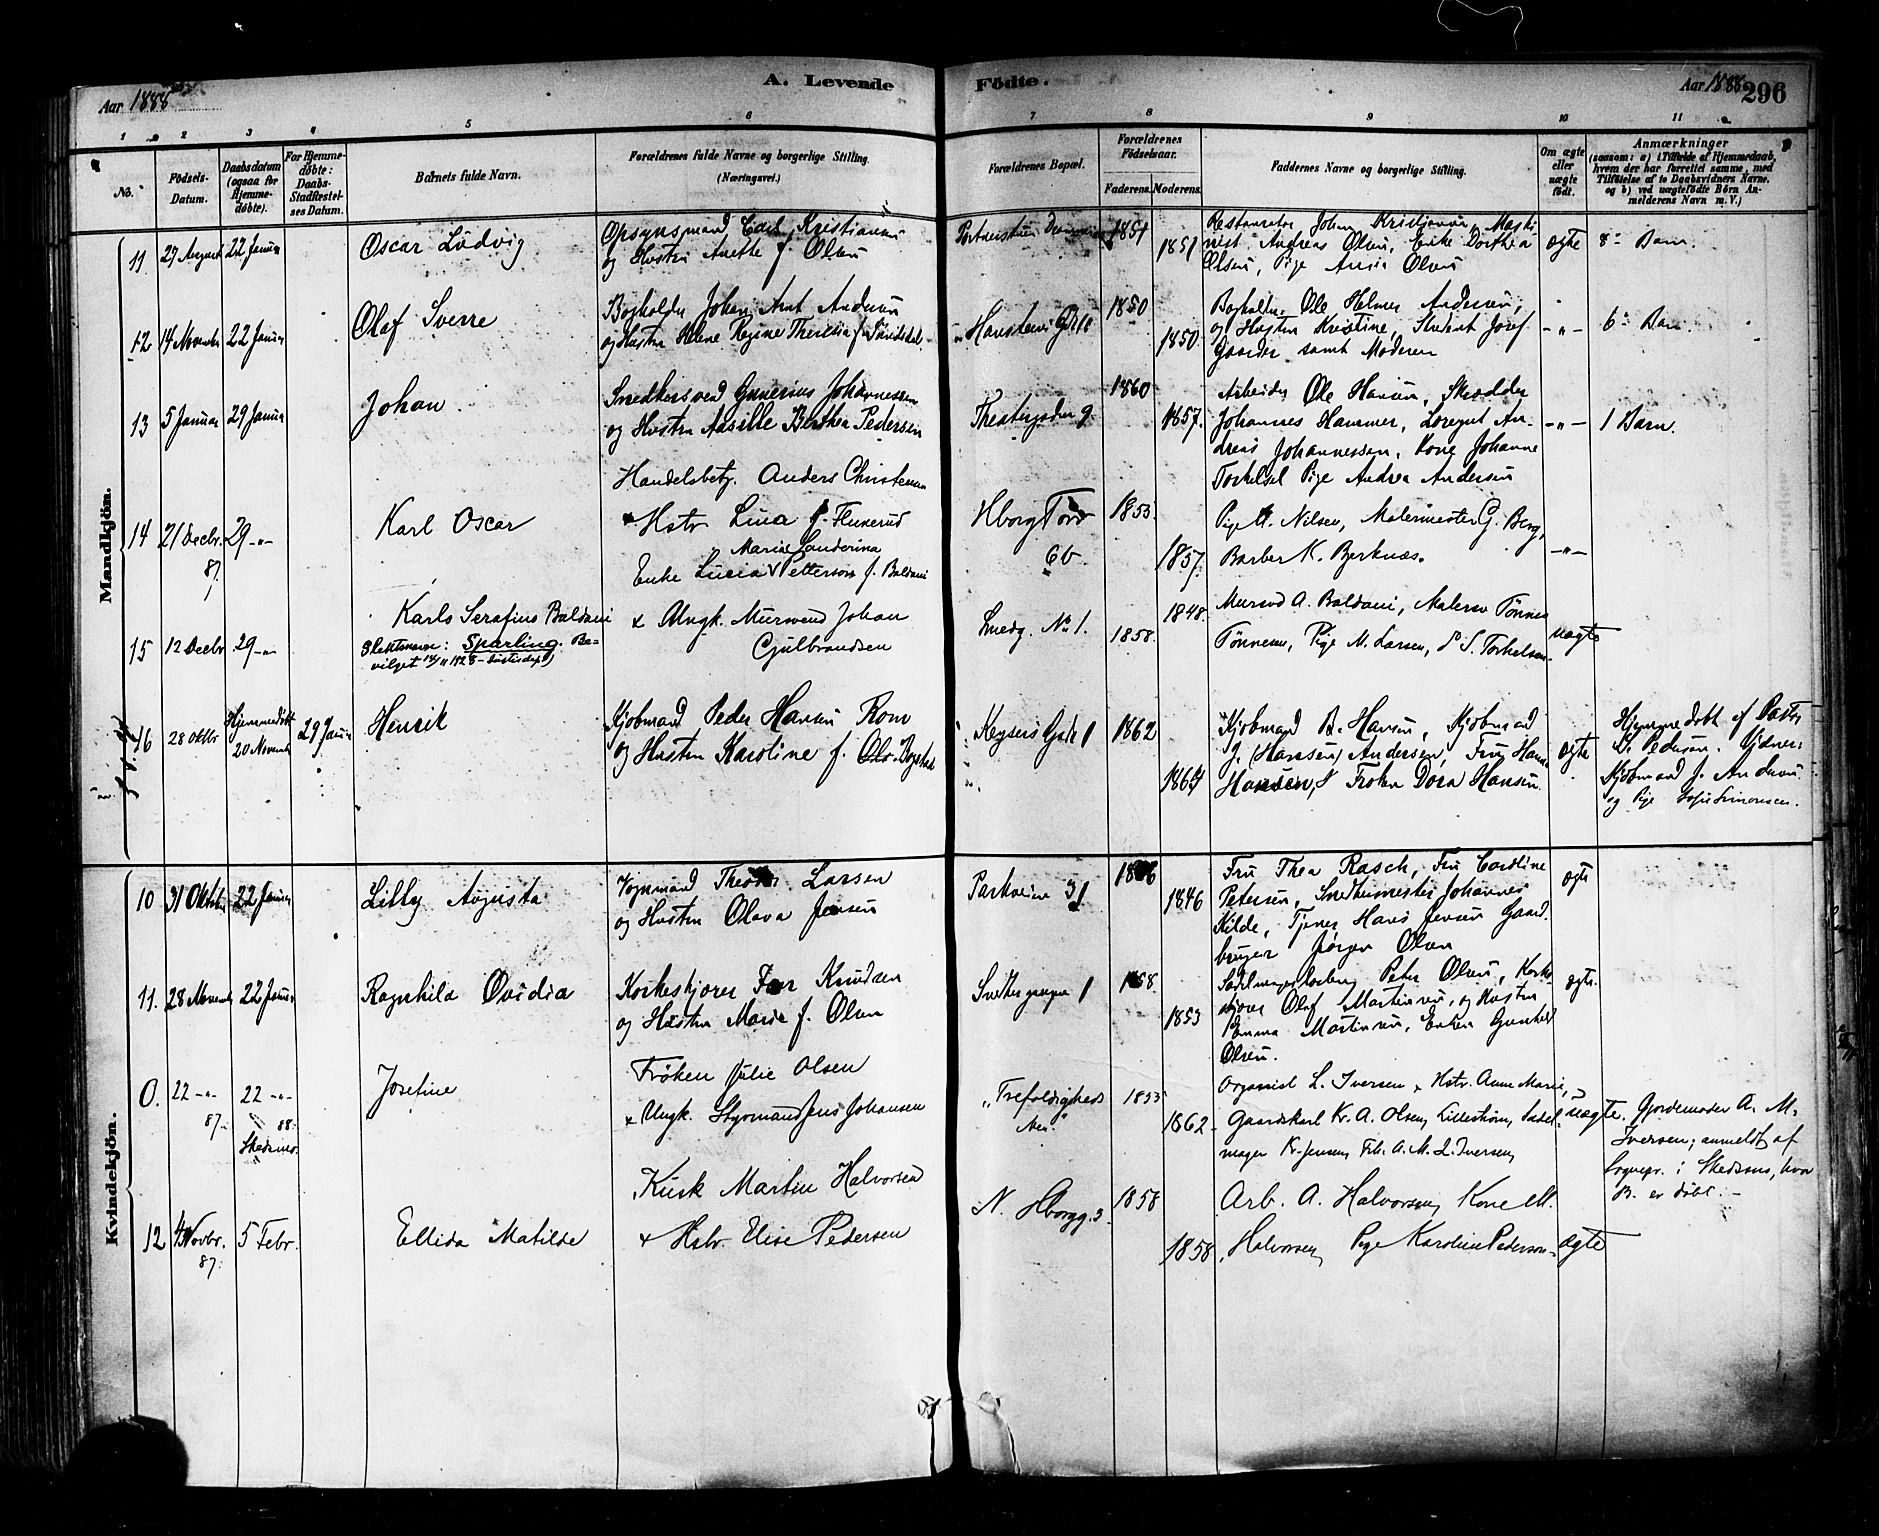 Aar 1888
A. Levende
Födte.
Aar 1888
296
1 2 3 4 5 6 7 8 9 10 11
No.
Födsels-
Datum.
Daabsdatum
(ogsaa for
Hjemme-
döbte).
For Hjemme-
döbte:
Daabs-
Stadfæstel-
ses Datum.
Barnets fulde Navn.
Forældrenes fulde Navne og borgerlige Stilling.
(Næringsvei.)
Forældrenes Bopæl.
Forældrenes
Födselsaar.
Faderens. Moderens.
Faddernes Navne og borgerlige Stilling.
Om ægte
eller
uægte
födt.
Anmærkninger
(saasom: a) i Tilfælde af Hjemmedaab,
hvem der har forrettet samme, med
Tilföielse af to Daabsvidners Navne.
og b) ved uægtefödte Börn An-
melderens Navn m. V.)
Mandkjön.
11. 27 August 22 Januar
Oscar Ludvig
Opsynsmand Carl Kristiansen
og Hustru Anette f. Olsen
1851
1851
Restauratør Johan Kristiansen, Maski-
nist Andreas Olsen, Enke Dorthea
Olsen, Pige Olsen
ægte
8de Barn.
12 14 Novembr 22 Januar
Olaf Sverre
Bogholder Johan Arnt Andersen
og Hustru Helene Regine Theresia f.
1850
1850
Bogholder Ole Helmer Andersen,
og Hustru Kristine, Student Josef
Gaarder samt Moderen
-"-
6te Barn.
13 5 Januar 29 Januar
Johan.
Smedkersvend Gunerius Johannessen
og Hustru Berthea Pedersen
Theatergaden 9.
1860
1857.
Arbeider Ole Hansen, Skrædder
Johannes Hammer, An-
dreas Johannessen, Kone Johanne
Pige Andrea Andersen
-"-
1 Barn.
14 21 Decbr. 29 -"-
87.
Karl Oscar
Handelsbetj. Anders Christensen
& Hstr. Lina f. Flukerud
Hborg Torv
6b.
1853.
1857.
Pige A. Nilsen, Malermester G. Berg,
Barber K. Bjerknæs.
-"-
15 12 Decbr 29 -"-
Karls Serafius Baldani
Slektsnavn: Sparling. Be-
vilget
Maria Sanderina
Enke Lucia Pettersen f. Baldani
& Ungk. Mursvend Johan
Gulbrandsen
Smedg. No 1.
1848.
1858.
Mursvd A. Baldani, Malersv Tönnes
Tönnesen, Pige M. Larsen, S. Torkelsen.
uægte
16 28 Oktbr Hjemmedöbt 20 Novemb 29 Januar
Henrik
Kjöbmand Peder Hansen Rom
og Hustru Karoline f. Bogstad
Keysers Gade 1
1862
1864
Kjöbmand B. Hansen, Kjöbmand
J. (Hansen) Andersen, Fru Hanna
Hansen, Fröken Dora Hansen
ægte
Hjemmedöbt af Pastor
B. Pedersen. Vidner:
Kjöbmand J. Andersen
og Pige Sofie Simonsen.
Kvindekjön.
10 31 Oktober 22 Januar
Lilly Augusta
Vognmand Larsen
og Hustru Olava Jensen
Parkveien 31
1846
Fru Thea Rasch, Fru Caroline
Petersen, Snedkermester Johannes
Kilde, Tjener Hans Jensen Gaard-
bruger Jörgen Olsen
ægte
11. 28 Novemb 22 Januar
Ragnhild Ovidia
Korkeskjærer Knudsen
og Hustru Marie f. Olsen
1858.
1853
Peter Olsen, Kork-
skjærer Olaf Martinsen, og Hustru
Emma Martinsen, Enken Gunhild
Olsen.
ægte.
O. 22 -"- 22 -"-
87. 88.
Skedsmo.
Josefine
Fröken Julie Olsen
& Ungk. Styrmand Jens Johansen
"Trefoldigheds
1853
1862.
Organist L. Iversen & Hstr. Anne Marie,
Gaardskarl Kr. A. Olsen, Lilleström, Sadel-
mager Kr. Jensen, Frk. A. M. L. Iversen,
uægte.
Gjordemoder A. M.
Iversen; anmeldt af
Sognepr. i Skedsmo, hvor
B. er döbt. –
12 4 Novbr. 5 Febr.
87.
Ellida Matilde
Kusk Martin Halvorsen
& Hstr. Elise Pedersen
N. Hborgg. 3.
1858
1858.
Arb. A. Halvorsen, Kone M.
Halvorsen, Pige Karoline Pedersen
ægte